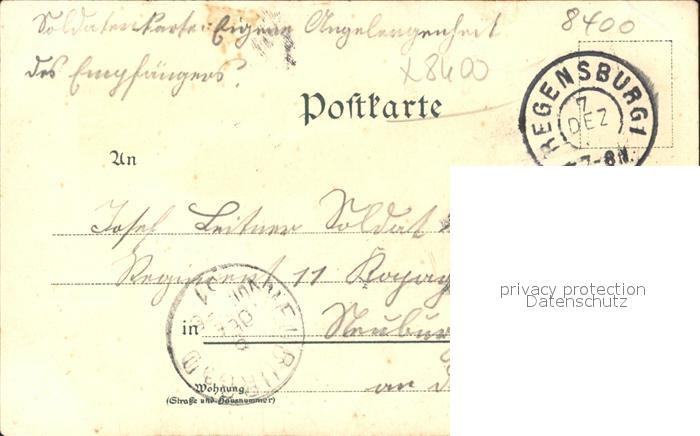 Soldatenkarte: Eigene Angelegenheit 8400
des Empfängers. x8400
Postkarte
REGENSBURG 1
7
DEZ
7-8 N.
An
Josef Leitner Soldat
Regiment 11
privacy protection
Datenschutz
in Neubur
DEZ
8
Wohnung
(Straße und Hausnummer)
an d